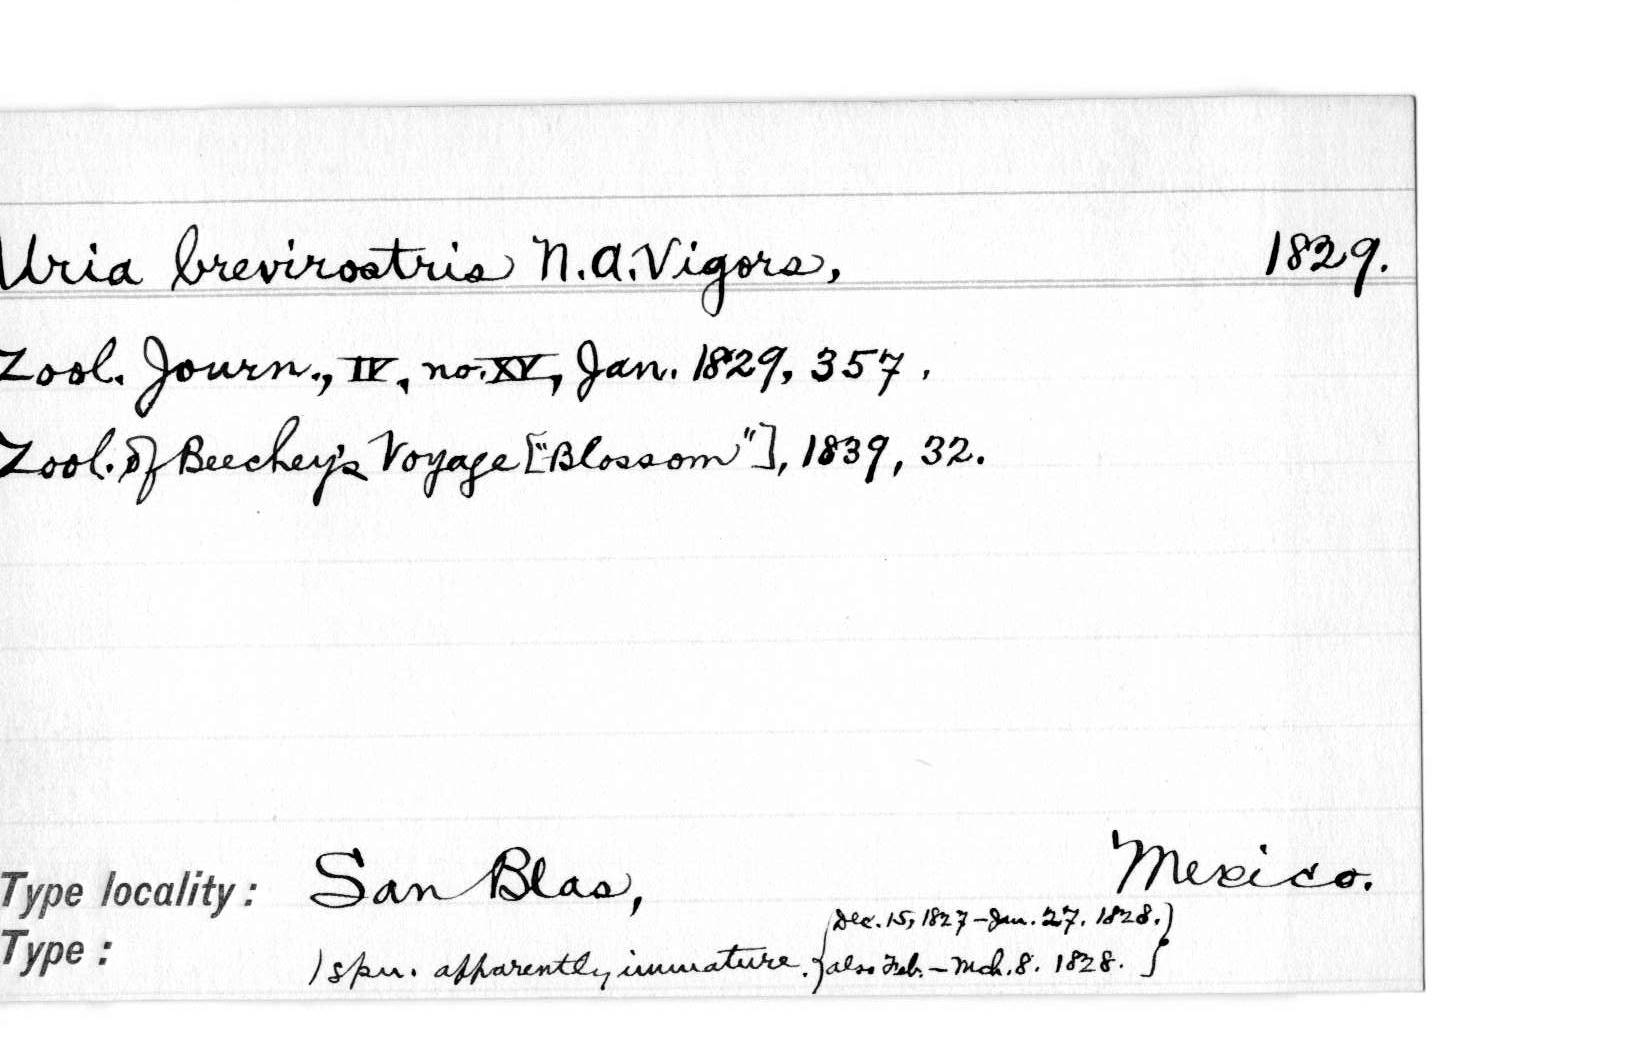 Uria brevirostris N.A.Vigors, 1829.
Zool. Journ., IV, no. XV, Jan. 1829, 357.
Zool. of Beechey's Voyage ["Blossom"], 1839, 32.
Type locality: San Blas, Mexico.
{Dec. 15, 1827 - Jan. 27. 1828.}
Type: 1 spn. apparently immature. {also Feb. - Mch. 8. 1828.}